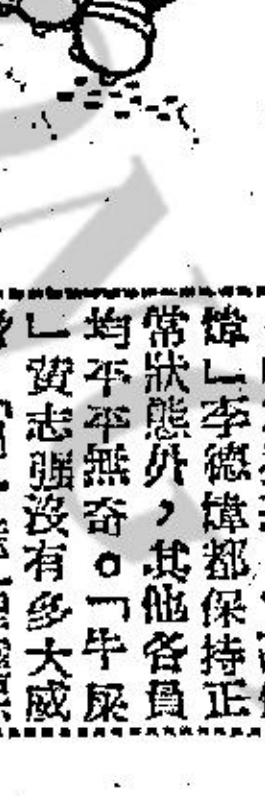 煒」李德煒都保持正
常狀態外，其他各員
均平平無奇。「牛屎
」黄志强沒有多大威